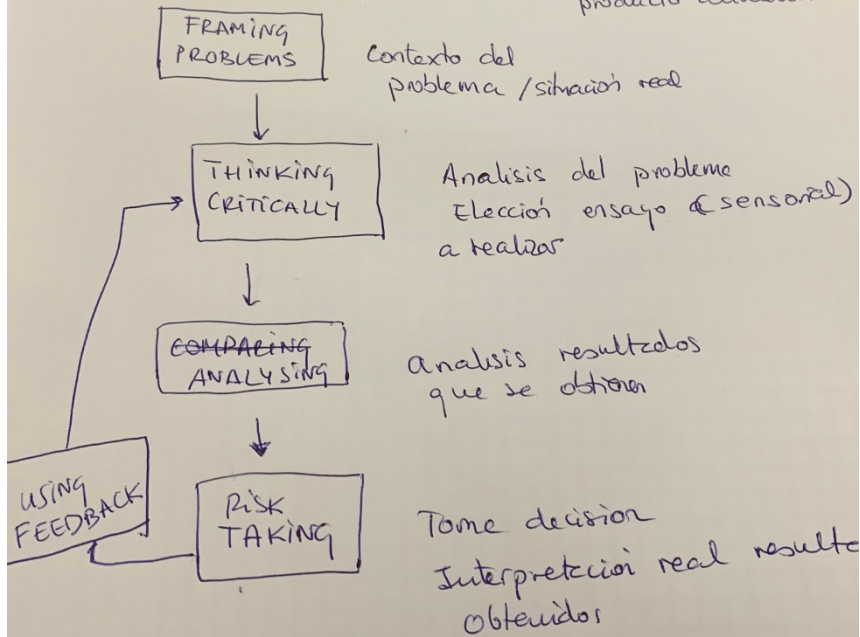 FRAMING
PROBLEMS
Contexto del
problema / situación real
THINKING
CRITICALLY
Analisis del problema
Elección ensayo (sensorial)
a realizar
COMPARING
ANALYSING
analisis resultados
que se obtienen
USING
FEEDBACK
RISK
TAKING
Tome decision
Interpretación real resulta
obtenidos